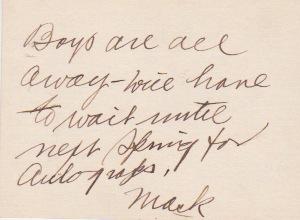 Boys are all
away - will have
to wait until
next Spring for
Autographs,
Mack